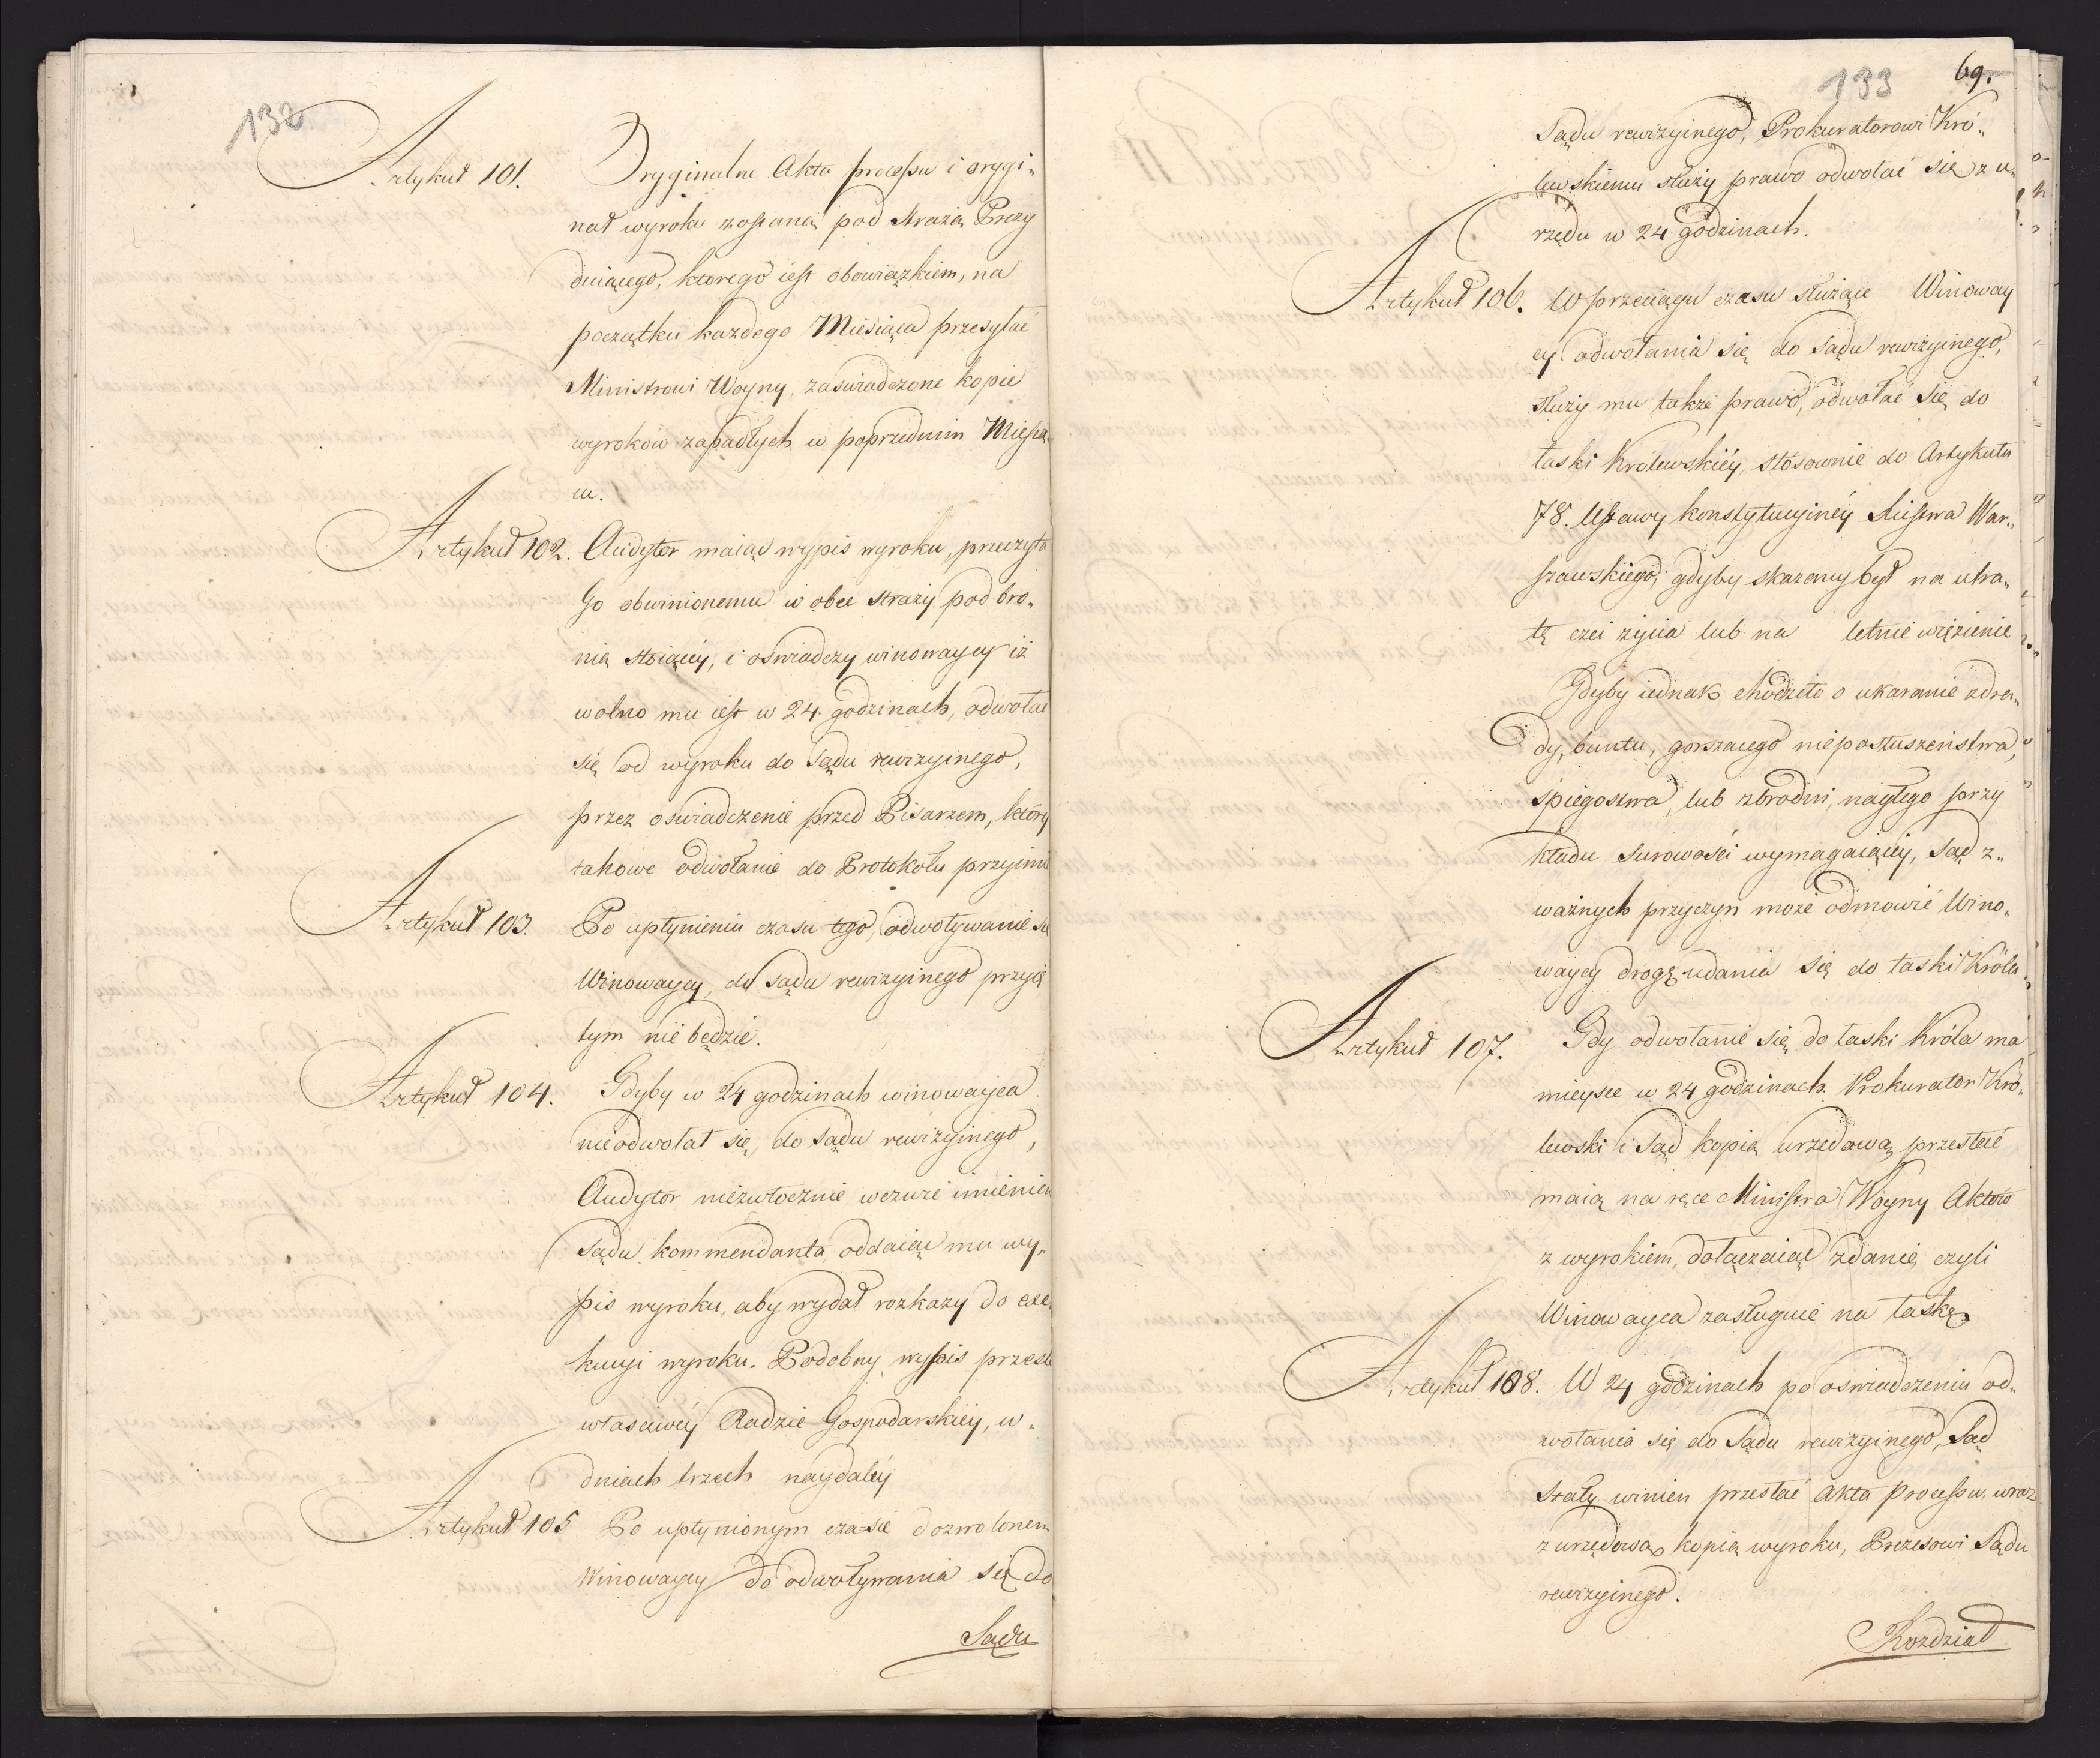 132
Artykuł 101. Oryginalne Akta processu i orygi„
nał wyroku zostaną pod strażą Prezy
duiącego, ktorego iest obowiązkiem, na
początku kazdego Miesiąca przesyłać
Ministrowi Woyny, zaświadczone kopie
wyrokow zapadłych w poprzednim Miesią„
cu.
Artykuł 102. Audytor maiąc wypis wyroku, przeczyta
Go obwinionemu w obec straży pod bro„
nią stoiącey, i oświadczy winowaycy iż
wolno mu iest w 24 godzinach, odwołać
się od wyroku do Sądu rewizyinego,
przez oświadczenie przed Pisarzem, który
takowe odwołanie do Protokołu przyimie
Artykuł 103. Po upłynieniu czasu tego, odwoływanie się
Winowaycy, do Sądu rewizyinego przyię
tym nie będzie.
Artykuł 104. Gdyby w 24 godzinach winowayca
nieodwołał się, do Sądu rewizyinego,
Audytor niezwłocznie wezwie imieniem
Sądu kommendanta oddaiąc mu wy„
pis wyroku, aby wydał rozkazy do exe„
kucyi wyroku. Podobny wypis przesle
własciwéy Radzie Gospodarskiéy, w„
dniach trzech naydaléy
Artykuł 105 Po upłynionym czasie dozwolonem
Winowaycy do odwoływania się do
Sądu
133 69.
Sądu rewizyinego, Prokuratorowi Kró„
lewskiemu służy prawo odwołać się z u„
rzędu w 24 godzinach.
Artykuł 106. W przeciągu czasu służące Winoway
cy odwołania się do Sądu rewizyinego,
służy mu także prawo, odwołać się do
łaski Królewskiéy, stósownie do Artykułu
78. Ustawy konstytucyinéy Xięstwa War„
szawskiego, gdyby skazany był na utra„
tę czci życia lub na letnie więzienie
Gdyby iednak chodziło o ukaranie zdra„
dy, buntu, gorszącego nieposłuszeństwa,
śpiegostwa, lub zbrodni, nagłego przy
kładu surowości wymagaiącey, Sąd z„
ważnych przyczyn może odmowić Wino„
waycy drogę udania się do łaski Króla„
Artykuł 107. Gdy odwołanie się do łaski Króla ma
mieysce w 24 godzinach. Prokurator Kró„
lewski i Sąd kopią urzędową przesłać
maią na ręce Ministra Woyny Aktów
z wyrokiem, dołączaiąc zdanie, czyli
Winowayca zasługuie na łaskę
Artykuł 108. W 24 godzinach po oświadczeniu od„
wołania się do Sądu rewizyinego, Sąd
Stały winien przesłać Akta Processu, wraz
z urzędową kopią wyroku, Prezesowi Sądu
rewizyinego.
Rozdział